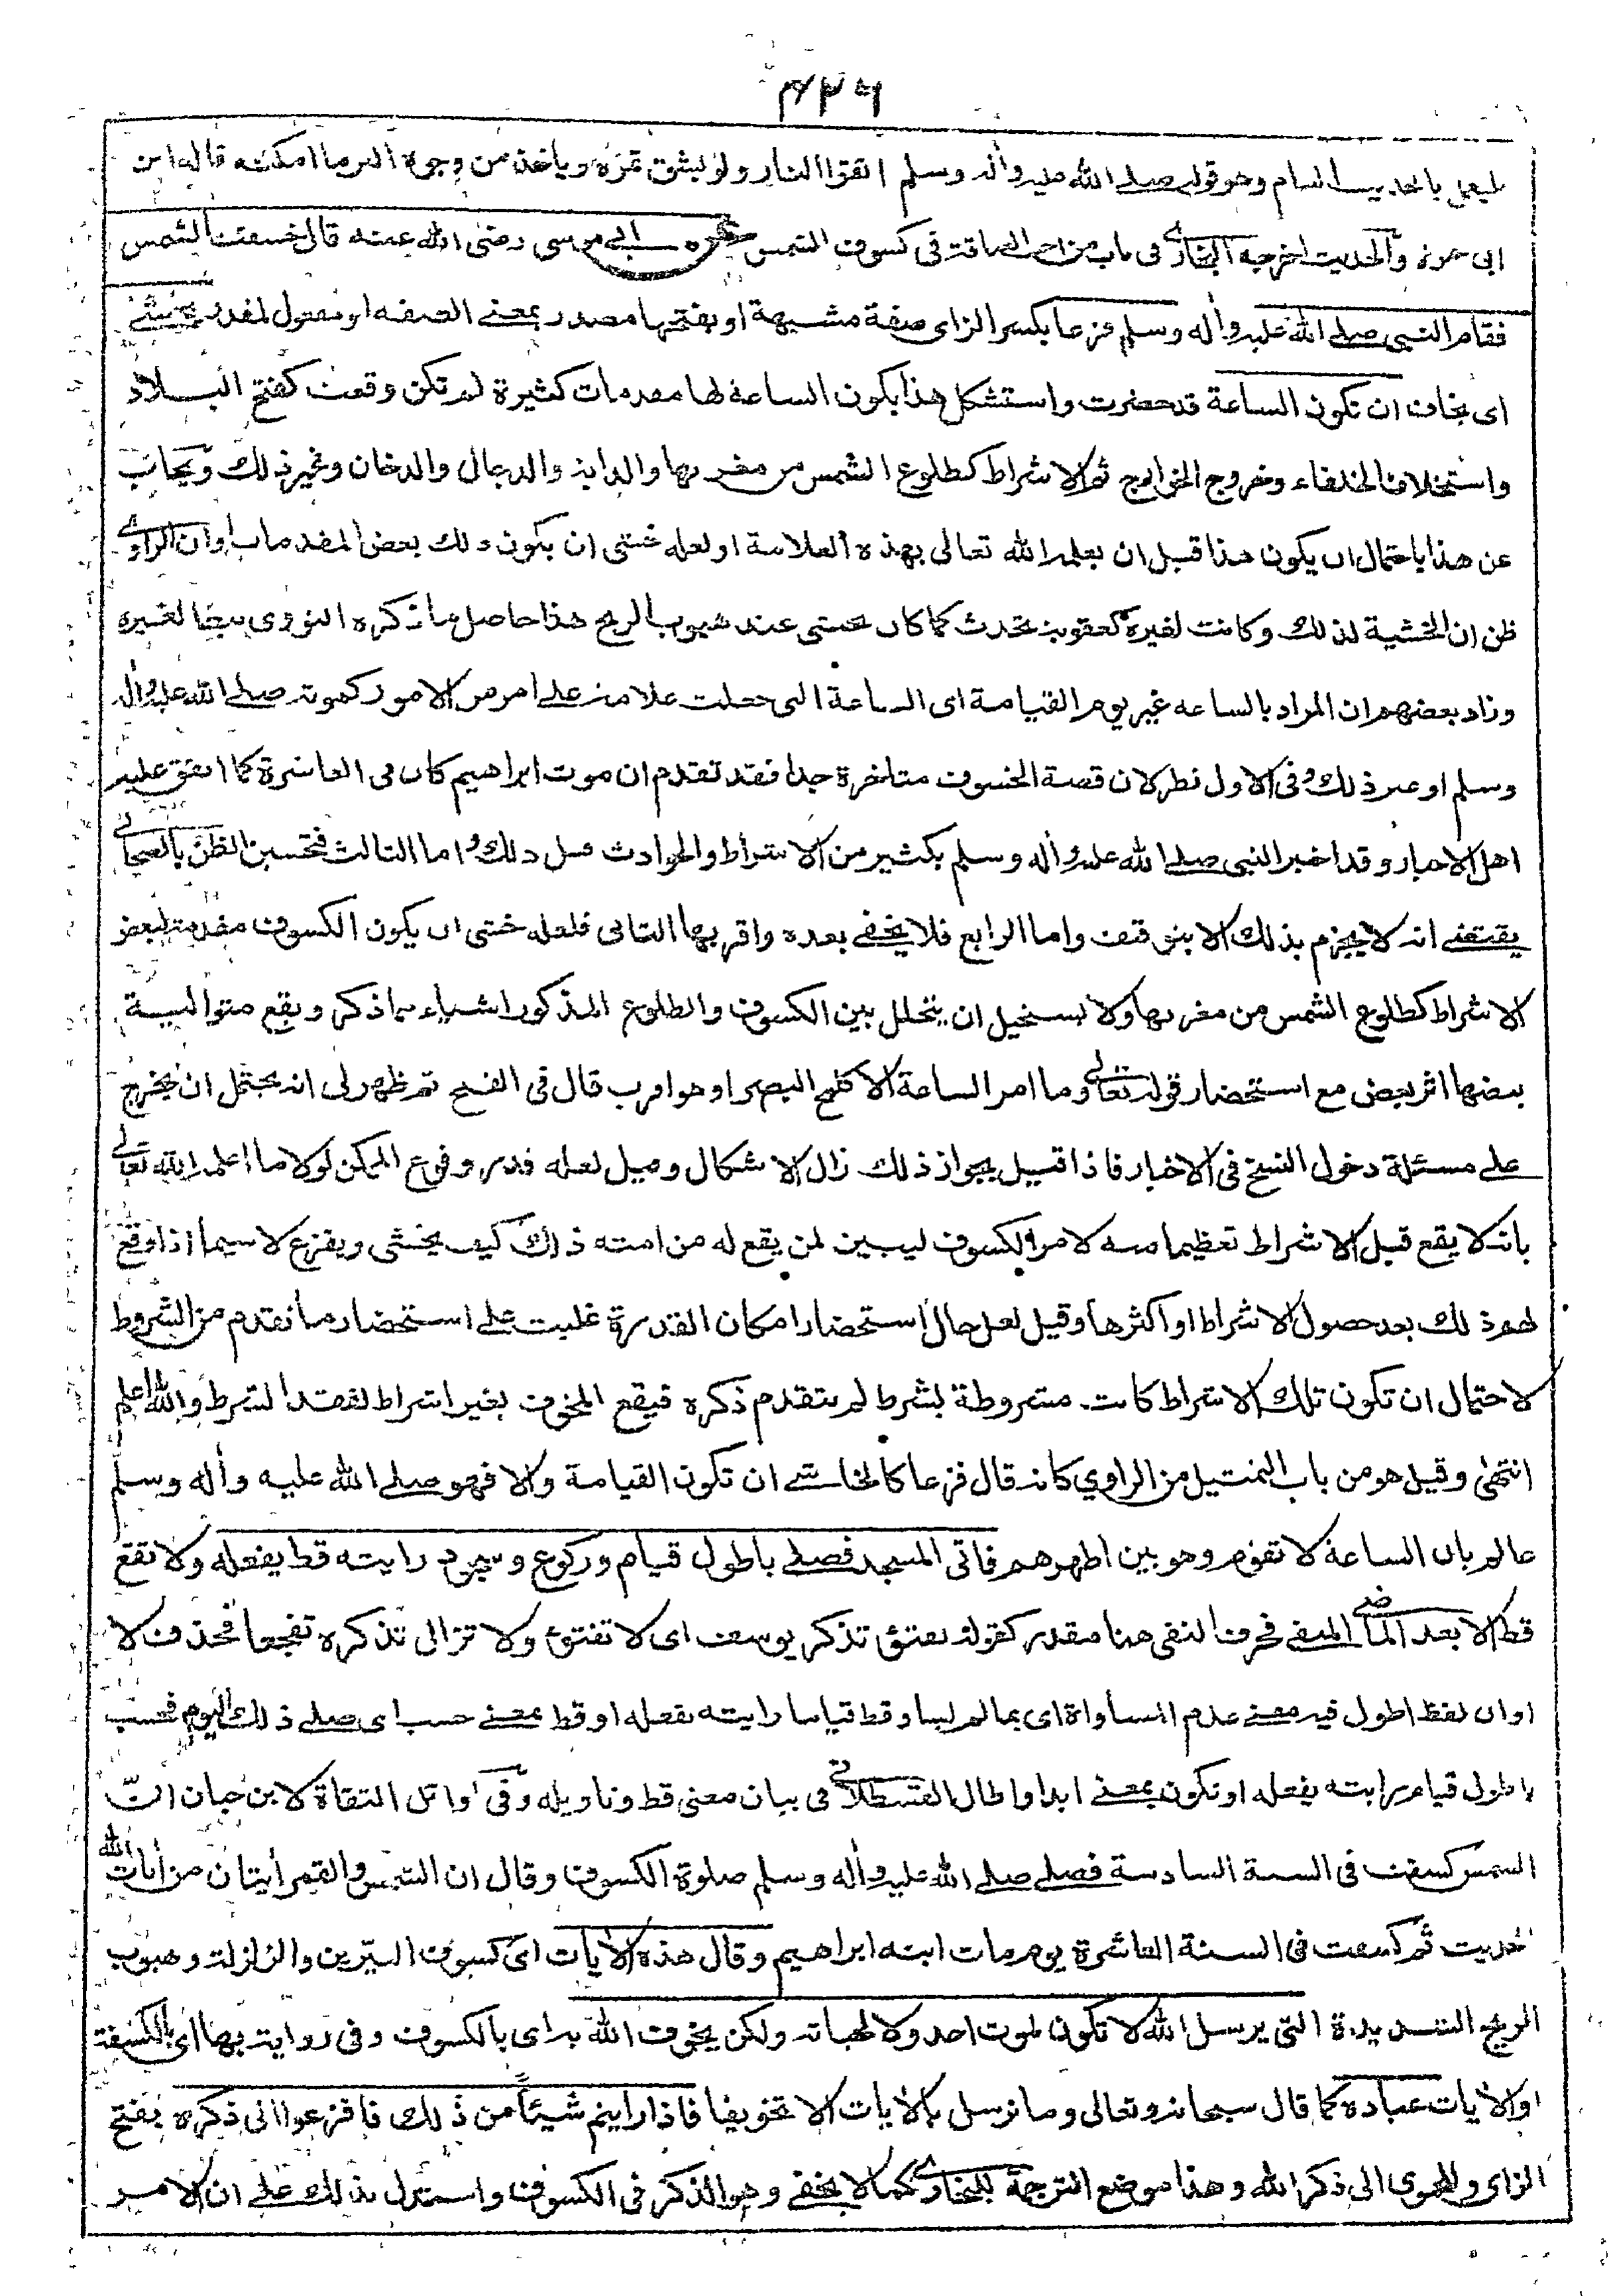 ٤٣٦
فليعمل بالحديث العام وهو قوله صلى الله عليه وأله وسلم اتقوا النار ولو بشق تمرة وياخذ من وجوه البر ما امكنه قاله ابن
ابى جمرة والحديث اخرجه البخارى فى باب من احب العتاقة فى كسوف الشمس عن ابى موسى رضى الله عنه قال خسفت الشمس
فقام النبى صلى الله عليه وأله وسلم فزعا بكسر الزاى صفة مشبهة او بفتحها مصدر بمعنى الصفه او مفعول لمقدر يخشى
اى يخاف ان تكون الساعة قد حضرت واستشكل هذا بكون الساعة لها مقدمات كثيرة لم تكن وقعت كفتح البلاد
واستخلاف الخلفاء وخروج الخوارج ثم الاشراط كطلوع الشمس من مغربها والدابة والدجال والدخان وغير ذلك ويجاب
عن هذا باحتمال ان يكون هذا قبل ان يعلمه الله تعالى بهذه العلامة او لعله خشى ان يكون ذلك بعض المقدمات او ان الراوى
ظن ان الخشية لذلك وكانت لغيره كعقوبة تحدث كما كان يخشى عند هبوب الريح هذا حاصل ما ذكره النووى تبعا لغيره
وزاد بعضهم ان المراد بالساعه غير يوم القيامة اى الساعة التى جعلت علامة على امر من الامور كموته صلى الله عليه وأله
وسلم او غير ذلك وفى الاول نظر لان قصة الخسوف متاخرة جدا فقد تقدم ان موت ابراهيم كان فى العاشرة كما اتفق عليه
اهل الاخبار وقد اخبر النبى صلى الله عليه وأله وسلم بكثير من الاشراط والحوادث قبل ذلك واما الثالث فتحسين الظن بالصحابى
يقتضى انه لا يجزم بذلك الا بتوقيف واما الرابع فلا يخفى بعده واقربها الثانى فلعله خشى ان يكون الكسوف مقدمة لبعض
الاشراط كطلوع الشمس من مغربها ولا يستحيل ان يتخلل بين الكسوف والطلوع المذكور اشياء مما ذكر ويقع متوالية
بعضها اثر بعض مع استحضار قوله تعالى وما امر الساعة الا كلمح البصر او هو اقرب قال فى الفتح ثم ظهر لى انه يحتمل ان يخرج
على مسئلة دخول النسخ فى الاخبار فاذا قيل بجواز ذلك زال الاشكال وقيل لعله قدر وقوع الممكن لولا ما اعلمه الله تعالى
بانه لا يقع قبل الاشراط تعظيما منه لامر الكسوف ليبين لمن يقع له من امته ذلك كيف يخشى ويفزع لاسيما اذا وقع
لهم ذلك بعد حصول الاشراط او اكثرها وقيل لعل حال استحضار امكان القدرة غلبت على استحضار ما تقدم من الشروط
لاحتمال ان تكون تلك الاشراط كانت مشروطة بشرط لم يتقدم ذكره فيقع المخوف بغير اشراط لفقد الشرط والله اعلم
انتهى وقيل هو من باب التمثيل من الراوي كانه قال فزعا كالخاشى ان تكون القيامة والا فهو صلى الله عليه وأله وسلم
عالم بان الساعة لا تقوم وهو بين اظهرهم فاتى المسجد فصلى باطول قيام وركوع وسجود رايته قط يفعله ولا تقع
قط الا بعد الماضى المنفى فحرف النفى هنا مقدر كقوله تفتؤ تذكر يوسف اى لا تفتؤ ولا تزالى تذكره تفجعا فحذف لا
او ان لفظ اطول فيه معنى عدم المساواة اى بما لم يساو قط قياما رايته يفعله او قط بمعنى حسب اى صلى ذلك اليوم فحسب
باطول قيام رايته يفعله او تكون بمعنى ابدا واطال القسطلانى فى بيان معنى قط وتاويله وفى اوائل الثقاة لابن حبان ان
الشمس كسفت فى السنة السادسة فصلى صلى الله عليه وأله وسلم صلوة الكسوف وقال ان الشمس والقمر أيتان من أيات الله
الحديث ثم كسفت فى السنة العاشرة يوم مات ابنه ابراهيم وقال هذه الأيات اى كسوف النيرين والزلزلة وهبوب
الريح الشديدة التى يرسل الله لا تكون لموت احد ولا لحياته ولكن يخوف الله به اى بالكسوف وفى رواية بها اى بالكسفة
او الأيات عباده كما قال سبحانه وتعالى وما نرسل بالأيات الا تخويفا فاذا رايتم شيئا من ذلك فافزعوا الى ذكره بفتح
الزاى وللحموى الى ذكر الله وهذا موضع الترجمة للبخارى كما لا يخفى وهو الذكر فى الكسوف واستدل بذلك على ان الامر